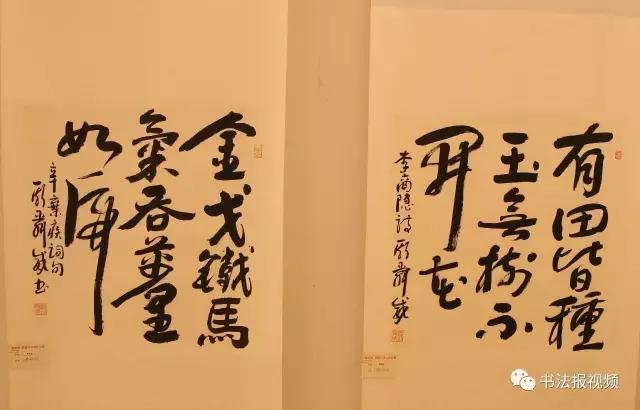 金戈鐵馬
氣吞萬里
如虎
辛棄疾詞句
有田皆種
玉無樹不
開花
李商隱詩
书法报视频